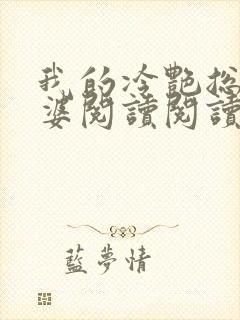 我的冷艷總
婆閱讀閱讀
藍夢情